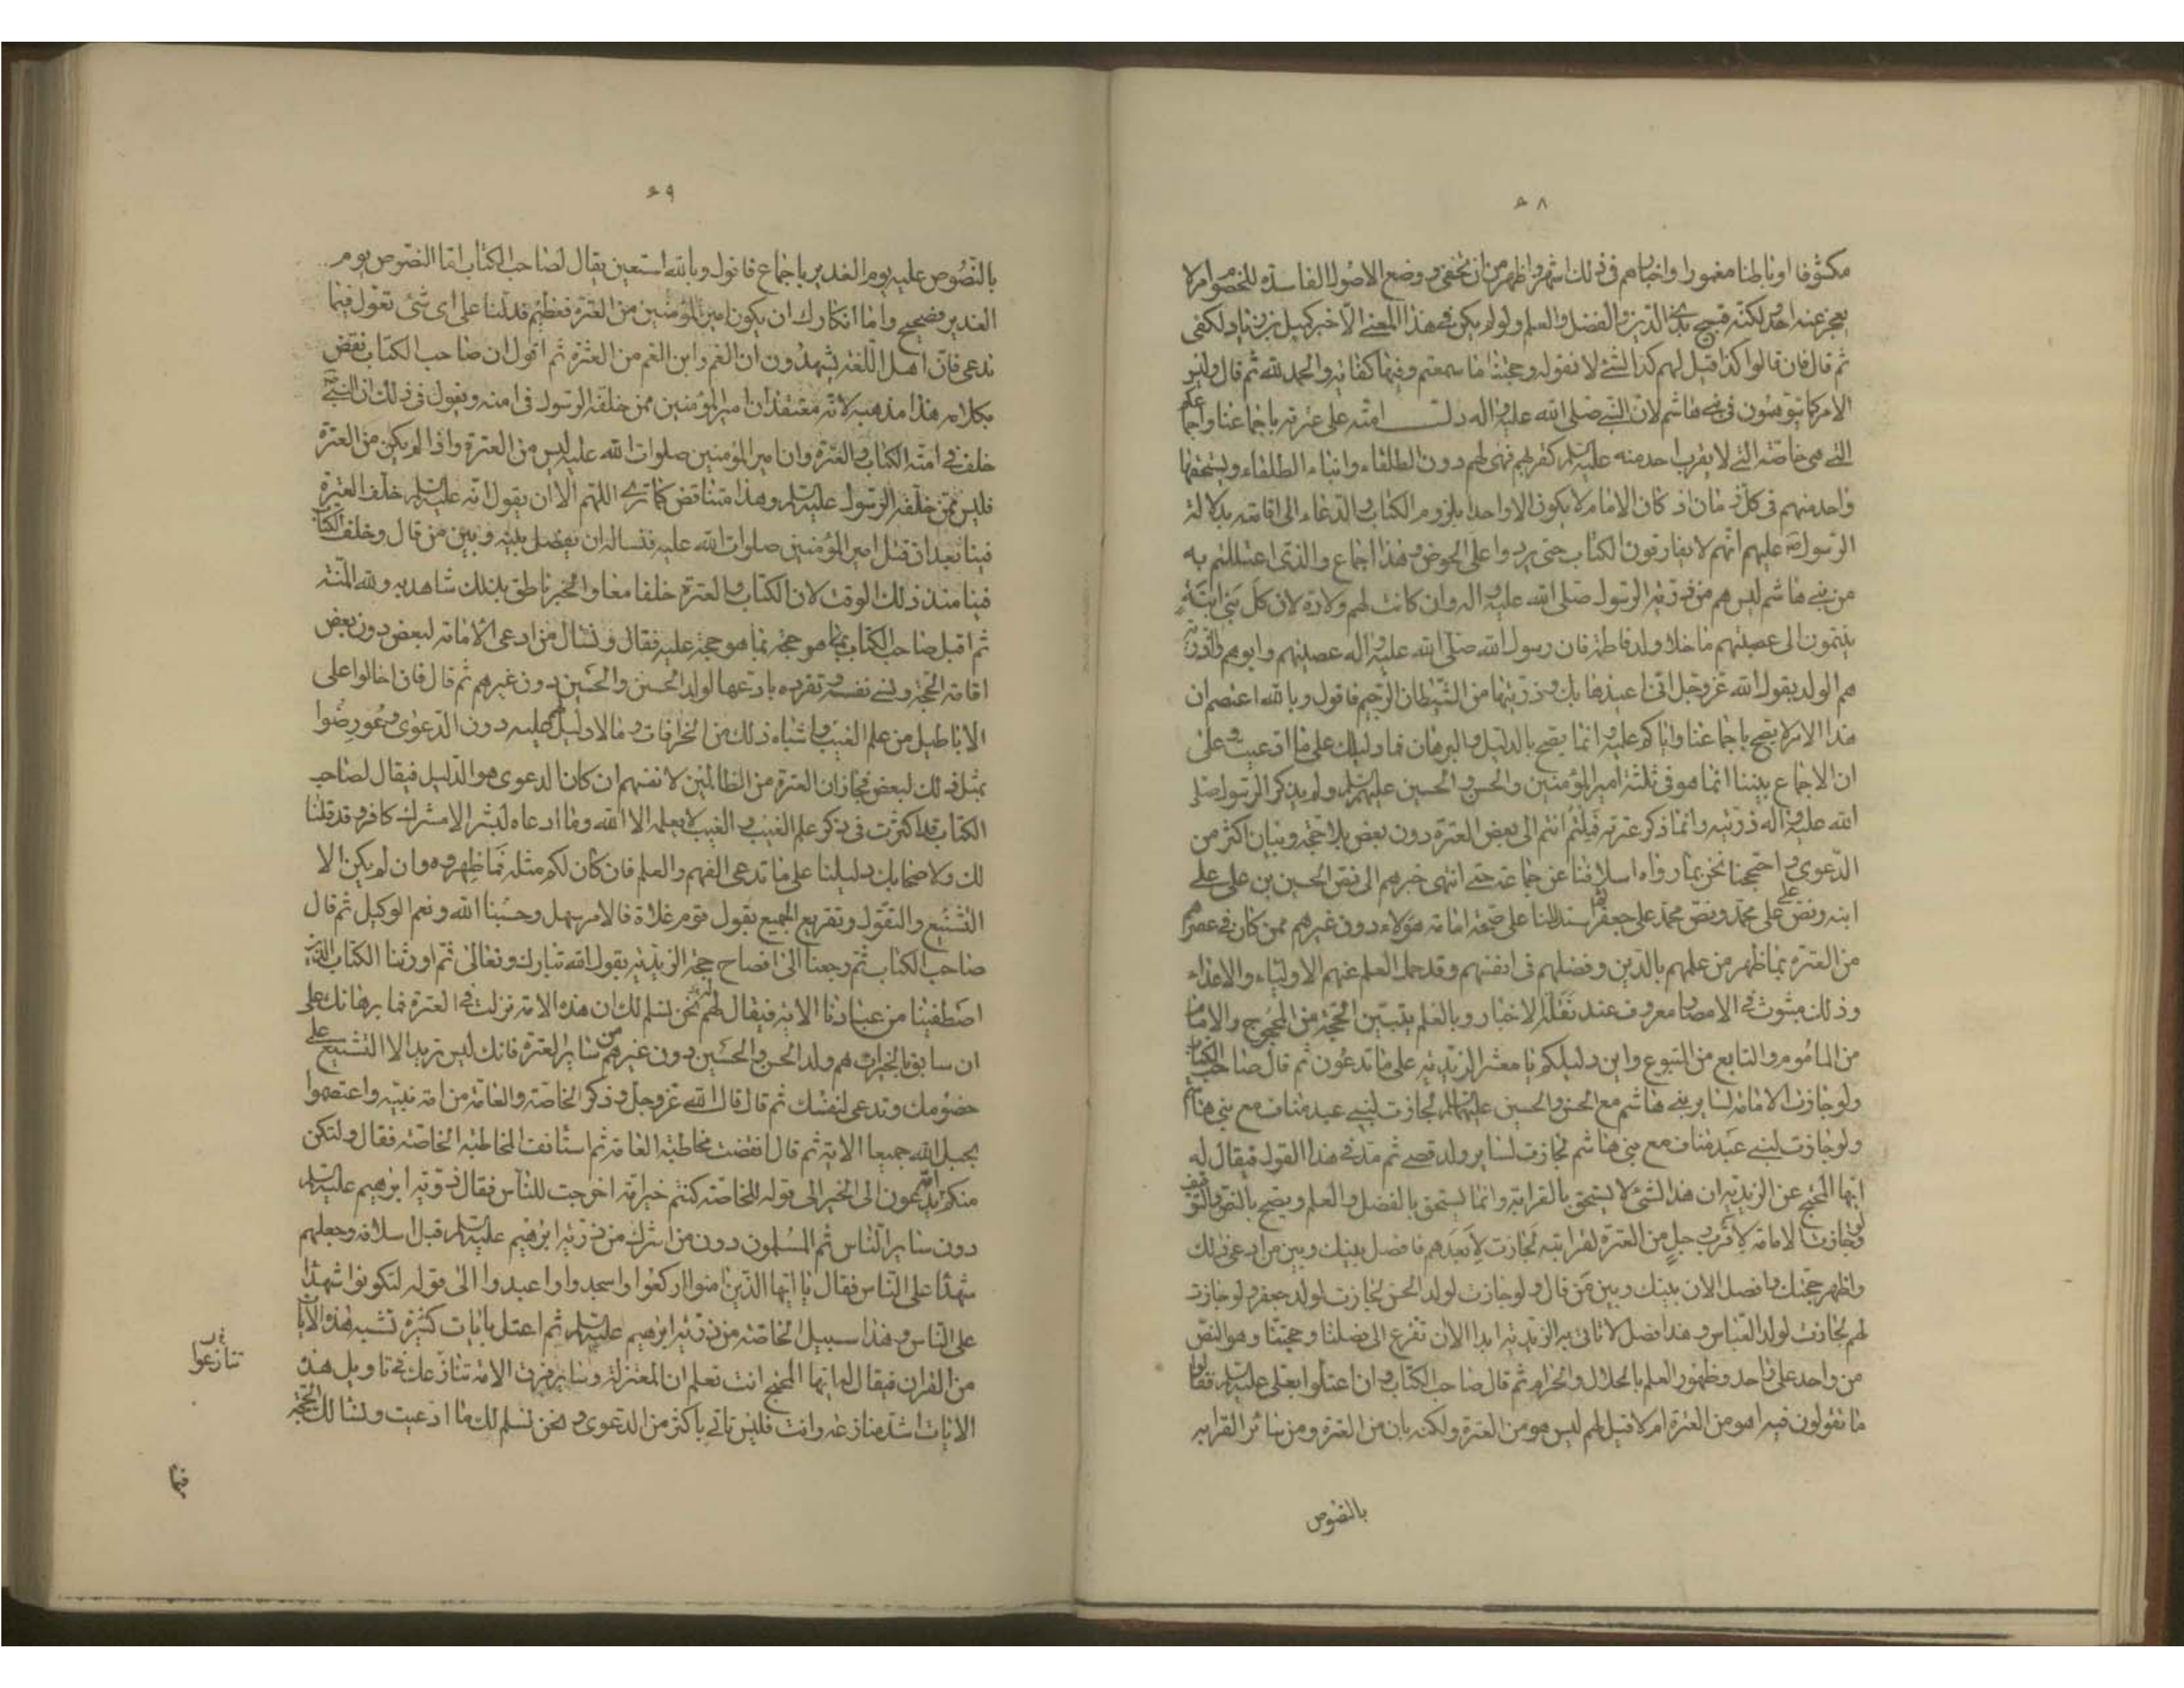 ٥٨
مكشوفا او باطنا مغمورا واخبارهم فى ذلك اشهر واظهر من ان تخفى ووضع الاصول الفاسدة للخصوم امر لا
يعجز عنه احد ولكنه قبيح بذى الدين والفضل والعلم ولو لم يكن فى هذا المعنى الا خبر كميل بن زياد لكفى
ثم قال فان قالوا كذا قيل لهم كذا لشئ لا نقوله وحجتنا ما سمعتم وفيها كفاية والحمد لله ثم قال وليس
الامر كما يتوهمون فى بنى هاشم لان النبى صلى الله عليه واله دل امته على عترته باجماعنا واجماعكم
التى هى خاصته التى لا يقرب احد منه عليه السلم كقربهم فهى لهم دون الطلقاء وابناء الطلقاء ويستحقها
واحد منهم فى كل زمان اذ كان الامام لا يكون الا واحدا بلزوم الكتاب والدعاء الى اقامته بدلالة
الرسول ص عليهم انهم لا يفارقون الكتاب حتى يردوا على الحوض وهذا اجماع والذى اعتللتم به
من بنى هاشم ليس هم من ذرية الرسول صلى الله عليه واله وان كانت لهم ولادة لان كل بنى ابنة
ينتمون الى عصبتهم ما خلا ولد فاطمة فان رسول الله صلى الله عليه واله عصبتهم وابوهم والذرية
هم الولد يقول الله عز وجل انى اعيذها بك وذريتها من الشيطان الرجيم فاقول وبالله اعتصم ان
هذا الامر لا يصح باجماعنا واياكم عليه وانما يصح بالدليل والبرهان فما دليلك على ما ادعيت وعلى
ان الاجماع بيننا انما هو فى ثلثة امير المؤمنين والحسن والحسين عليهم السلم ولم يذكر الرسول صلى
الله عليه واله ذريته وانما ذكر عترته فملتم انتم الى بعض العترة دون بعض بلا حجة وبيان اكثر من
الدعوى واحتججنا نحن بما رواه اسلافنا عن جماعة حتى انتهى خبرهم الى نص الحسين بن على على
ابنه ونص على على محمد ونص محمد على جعفر ثم استدللنا على صحة امامة هؤلاء دون غيرهم ممن كان فى عصرهم
من العترة بما ظهر من علمهم بالدين وفضلهم فى انفسهم وقد حمل العلم عنهم الاولياء والاعداء
وذلك مبثوث فى الامصار معروف عند نقلة الاخبار وبالعلم يتبين الحجة من المحجوج والامام
من الماموم والتابع من المتبوع واين دليلكم يا معشر الزيدية على ما تدعون ثم قال صاحب الكتاب
ولو جازت الامامة لسائر بنى هاشم مع الحسن والحسين عليهما السلم لجازت لبنى عبد مناف مع بنى هاشم
ولو جازت لبنى عبد مناف مع بنى هاشم لجازت لسائر ولد قصى ثم مد فى هذا القول فيقال له
ايها المحتج عن الزيدية ان هذا الشئ لا يستحق بالقرابة وانما يستحق بالفضل والعلم ويصح بالنص والتوقيف
ولو جازت الامامة لاقرب رجل من العترة لقرابته لجازت لابعدهم فافصل بينك وبين من ادعى ذلك
واظهر حجتك وافصل الان بينك وبين من قال ولو جازت لولد الحسن لجازت لولد جعفر ولو جازت
لهم لجازت لولد العباس وهذا فصل لا تاتى به الزيدية ابدا الا ان تفزع الى فصلنا وحجتنا وهو النص
من واحد على واحد وظهور العلم بالحلال والحرام ثم قال صاحب الكتاب وان اعتلوا بعلى عليه السلم فقالوا
ما تقولون فيه اهو من العترة ام لا قيل لهم ليس هو من العترة ولكنه بان من العترة ومن سائر القرابة
بالنصوص
٥٩
بالنصوص عليه يوم الغدير باجماع فاقول وبالله استعين يقال لصاحب الكتاب اما النصوص يوم
الغدير فصحيح واما انكارك ان يكون امير المؤمنين من العترة فعظيم فدلنا على اى شئ تعول فيما
تدعى فان اهل اللغة يشهدون ان العم وابن العم من العترة ثم اقول ان صاحب الكتاب نقض
بكلامه هذا مذهبه لانه معتقد ان امير المؤمنين ممن خلفه الرسول فى امته ويقول فى ذلك ان النبى ص
خلف فى امته الكتاب والعترة وان امير المؤمنين صلوات الله عليه ليس من العترة واذا لم يكن من العترة
فليس ممن خلفه الرسول عليه السلم وهذا متناقض كما ترى اللهم الا ان يقول انه عليه السلم خلف العترة
فينا بعد ان قتل امير المؤمنين صلوات الله عليه فنساله ان يفصل بينه وبين من قال وخلف الكتاب
فينا منذ ذلك الوقت لان الكتاب والعترة خلفا معا والخبر ناطق بذلك شاهد به ولله المنة
ثم اقبل صاحب الكتاب بما هو حجة بما هو حجة عليه فقال ونسال من ادعى الامامة لبعض دون بعض
اقامة الحجة ونسى نفسه وتفرده بادعائها لولد الحسن والحسين دون غيرهم ثم قال فان احالوا على
الاباطيل من علم الغيب واشباه ذلك من الخرافات وما لا دليل لهم عليه دون الدعوى وعورضوا
بمثل ذلك لبعض فجاز ان العترة من الظالمين لانفسهم ان كان الدعوى هو الدليل فيقال لصاحب
الكتاب قد اكثرت فى ذكر علم الغيب والغيب لا يعلمه الا الله وما ادعاه لبشر الا مشرك كافر وقد قلنا
لك ولاصحابك دليلنا على ما تدعى الفهم والعلم فان كان لكم مثله فاظهروه وان لم يكن الا
التشنيع والتقول وتقريع الجميع بقول قوم غلاة فالامر سهل وحسبنا الله ونعم الوكيل ثم قال
صاحب الكتاب ثم رجعنا الى افصاح حجة الزيدية بقول الله تبارك وتعالى ثم اورثنا الكتاب الذين
اصطفينا من عبادنا الاية فيقال لهم نحن نسلم لك ان هذه الاية نزلت فى العترة فما برهانك على
ان سابق بالخيرات هم ولد الحسن والحسين دون غيرهم من سائر العترة فانك ليس تريد الا التشنيع على
خصومك وتدعى لنفسك ثم قال قال الله عز وجل وذكر الخاصة والعامة من امة نبيه واعتصموا
بحبل الله جميعا الاية ثم قال انقضت مخاطبة العامة ثم استانف المخاطبة الخاصة فقال ولتكن
منكم امة يدعون الى الخير الى قوله للخاصة كنتم خير امة اخرجت للناس فقال ذرية ابرهيم عليه السلم
دون سائر الناس ثم المسلمون دون من اشرك من ذرية ابرهيم عليه السلم قبل اسلامه وجعلهم
شهدا على الناس فقال يا ايها الذين امنوا اركعوا واسجدوا واعبدوا الى قوله لتكونوا شهدا
على الناس وهذا سبيل الخاصة من ذرية ابرهيم عليه السلم ثم اعتل بايات كثيرة تشبه هذه الايات
من القران فيقال له ايها المحتج انت تعلم ان المعتزلة وسائر فرق الامة تنازعك فى تاويل هذه
الايات اشد منازعة وانت فليس تاتى باكثر من الدعوى ونحن نسلم لك ما ادعيت ونسالك الحجة
تنازعوا
فيما